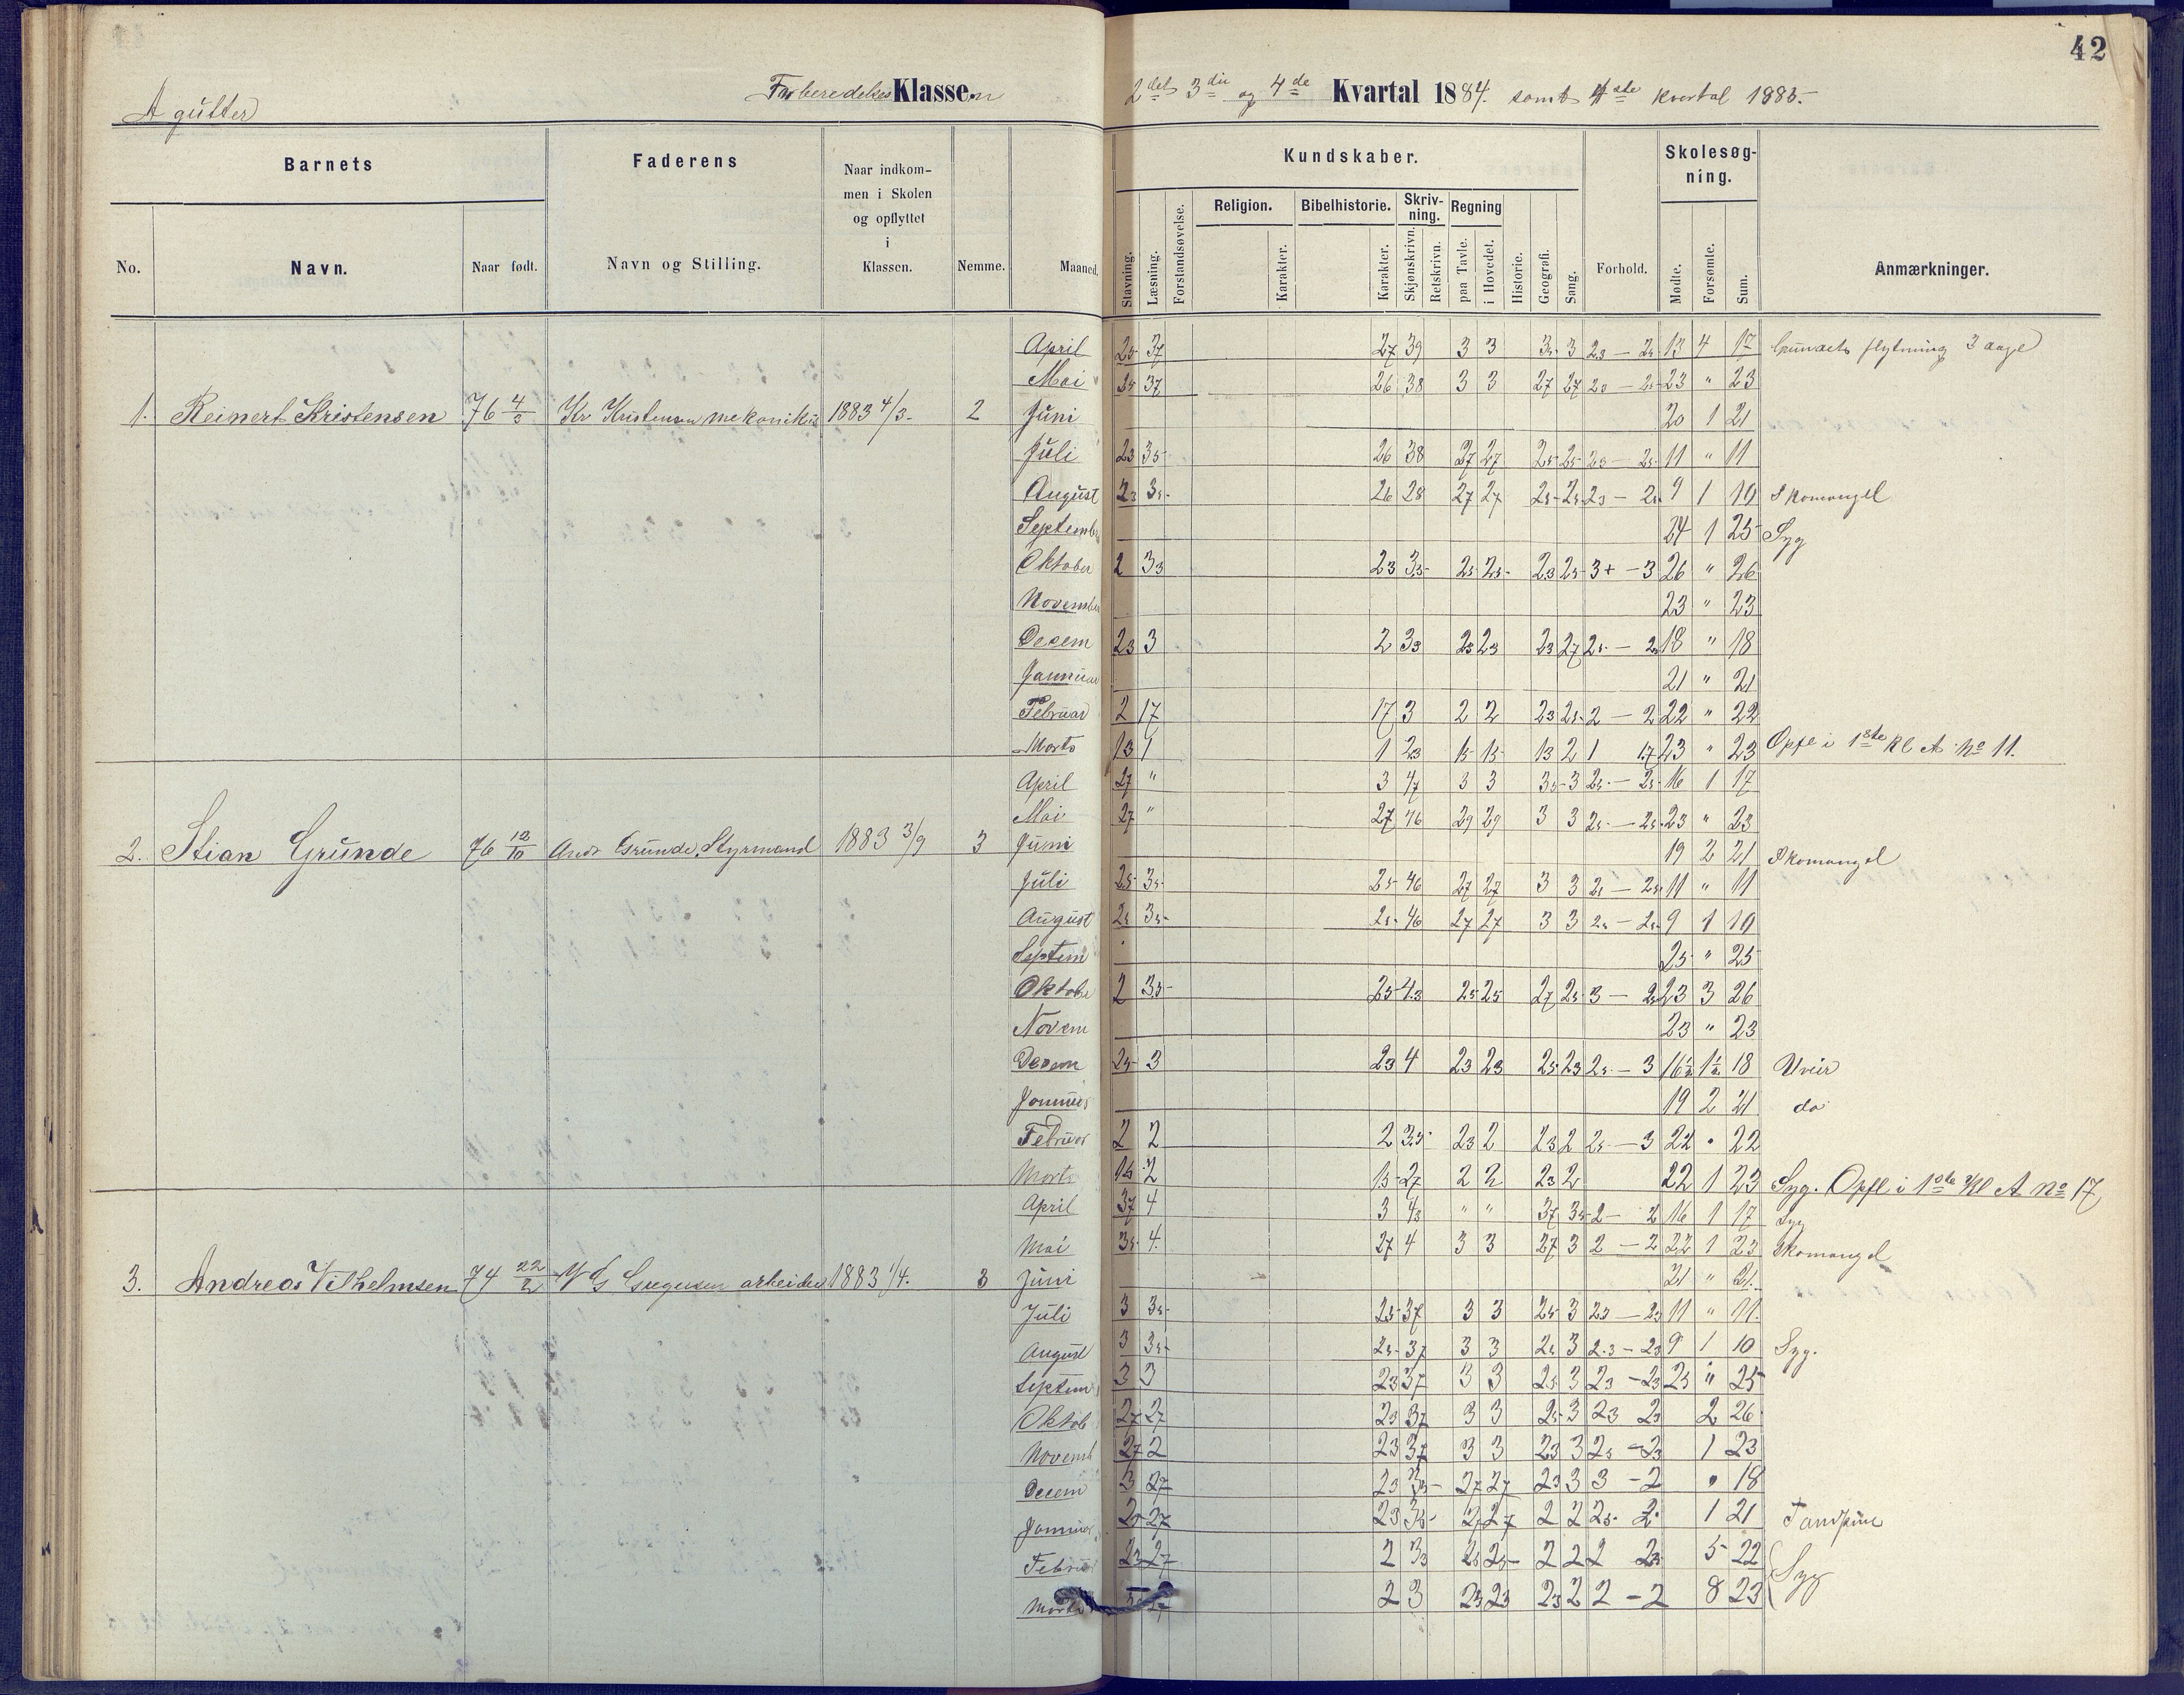 42
A gutter Forberedelses Klassen
2det 3die og 4de Kvartal 1884. samt 1ste kvartal 1885.
Barnets Faderens Naar indkommen i Skolen og opflyttet i Klassen. Nemme. Maaned.
No. Navn. Naar født. Navn og Stilling.
Kundskaber. Forhold. Skolesøgning. Anmærkninger.
Stavning. Læsning. Forstandsøvelse. Religion. Karakter. Bibelhistorie. Karakter. Skrivning. Skjønskrivn. Retskrivn. Regning paa Tavle. i Hovedet. Historie. Geografi. Sang. Mødte. Forsømte. Sum.
April 25 37 27 39 3 3 13 4 17 flytning 3 dage
Mai 25 37 26 38 3 3 27 27 23 " 23
1. Reinert Kristensen 76 Kr Kristensen mekanikus 1883 4/3. 2 Juni 20 1 21
Juli 23 35 26 38 27 27 25 25 23 – 25 11 " 11
August 23 35 26 28 27 27 25 25 23 – 25 9 1 10 Skomangel
September 24 1 25 Syg
Oktober 2 33 23 35 25 25 23 25 3+ – 3 26 " 26
November 23 " 23
Decem 23 3 2 33 23 23 23 27 25 – 18 " 18
Januar 21 " 21
Februar 2 17 17 3 2 2 23 25 2 – 2 22 " 22
Marts 13 1 1 23 15 15 13 2 1 17 23 " 23 Opfl i 1ste Kl A No 11.
April 27 " 3 47 3 3 35 3 25 – 25 16 1 17
Mai 27 " 27 46 29 29 3 3 25 – 25 23 " 23
2. Stian Grunde 76 12/10 Andr Grunde, Styrmand 1883 3/9 3 Juni 19 2 21 Skomangel
Juli 25 35 25 46 27 27 3 3 25 – 25 11 " 11
August 25 35 25 46 27 27 3 3 25 – 25 9 1 10
Septem 25 " 25
Oktober 2 35 25 43 25 25 27 25 3 – 23 3 26
Novem 23 " 23
Decem 25 3 23 4 23 23 25 23 25 – 3 16½ 1½ 18 Uveir
Januar 19 2 21 do
Februar 2 2 2 35 23 2 23 2 25 – 3 22 " 22
Marts 15 2 15 27 2 2 23 2 22 1 23 Syg. Opfl i 1ste Kl A No 17
April 37 4 3 43 " " 37 35 2 – 2 16 1 17 Syg
Mai 35 4 27 4 3 3 27 3 2 – 2 22 1 23 Skomangel
3. Andreas Vilhelmsen 74 22/2 arbeider 1883 1/4. 3 Juni 21 " 21.
Juli 3 35 25 37 3 3 25 3 23 – 23 11 " 11.
August 3 35 25 37 3 3 25 3 23 – 23 9 1 10 Syg.
Septem 3 3 23 37 3 3 25 3 23 – 23 25 " 25
Oktob 27 27 23 37 3 3 25 3 23 23 2 26
Novemb 27 2 23 37 3 3 23 3 25 – 23 1 23
Decem 3 27 23 35 27 27 23 3 3 – 2 " 18
Januar 25 27 23 35 27 27 2 2 25 2 1 21 Tandpine
Februar 23 27 2 33 25 25 2 2 2 23 5 22 Syg
Marts 2 3 23 23 23 2 2 – 2 8 23